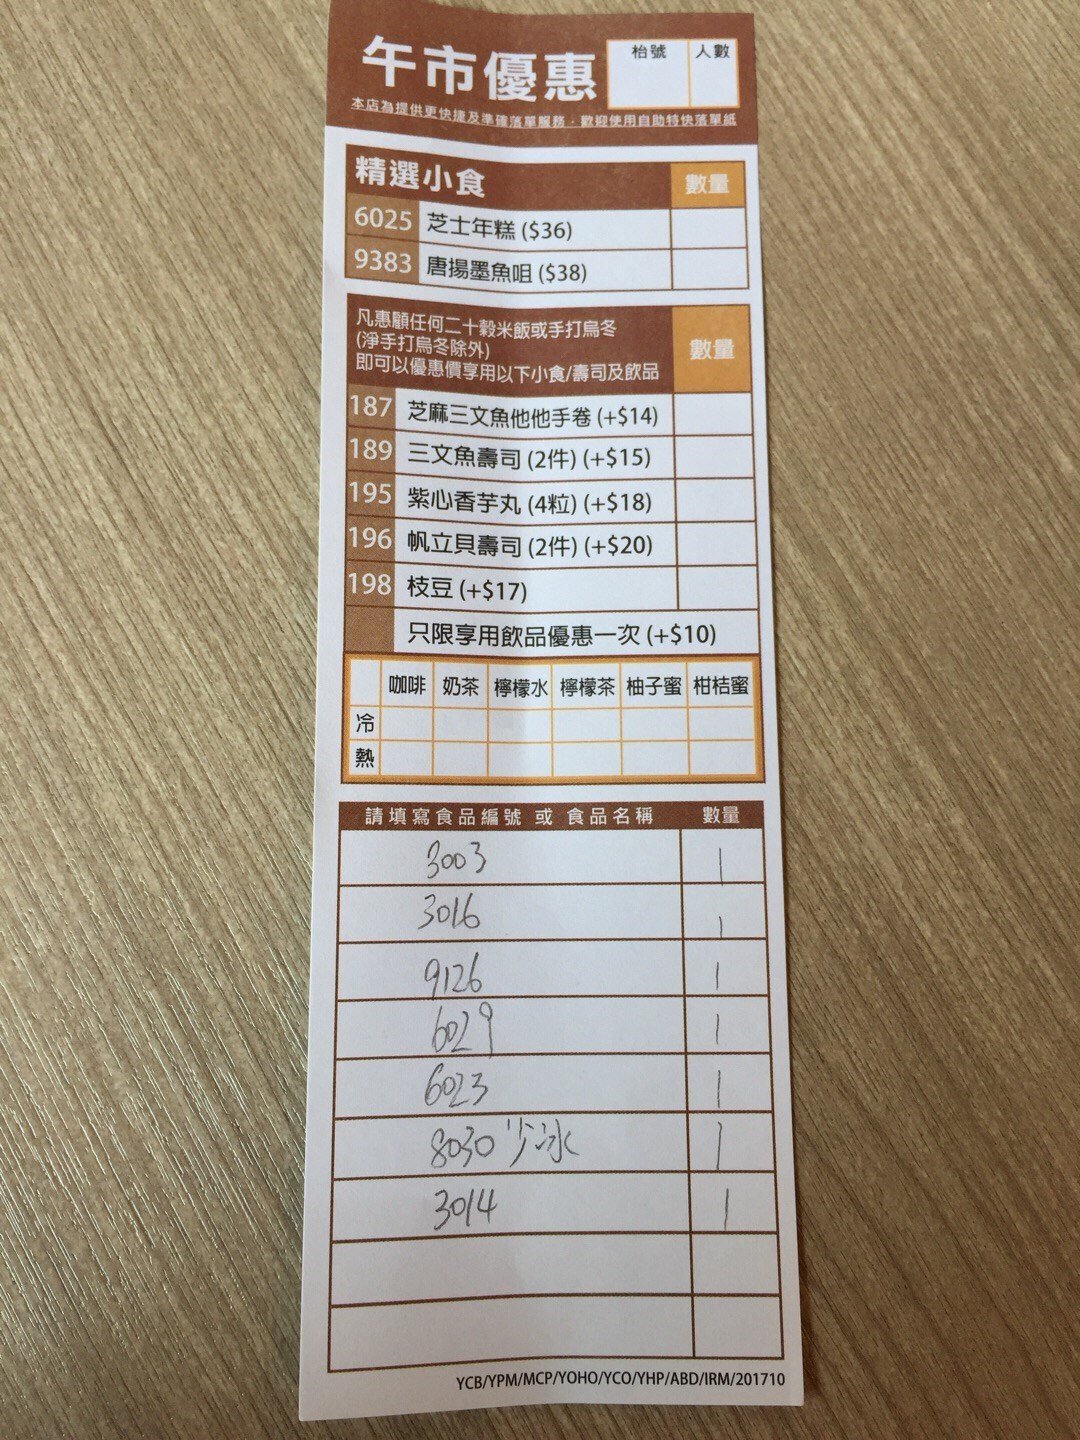 午市優惠
枱號 人數
本店為提供更快捷及準確落單服務，歡迎使用自助特快落單紙
精選小食 數量
6025 芝士年糕 ($36)
9383 唐揚墨魚咀 ($38)
凡惠顧任何二十穀米飯或手打烏冬
(淨手打烏冬除外)
即可以優惠價享用以下小食/壽司及飲品
數量
187 芝麻三文魚他他手卷 (+$14)
189 三文魚壽司 (2件) (+$15)
195 紫心香芋丸 (4粒) (+$18)
196 帆立貝壽司 (2件) (+$20)
198 枝豆 (+$17)
只限享用飲品優惠一次 (+$10)
咖啡 奶茶 檸檬水 檸檬茶 柚子蜜 柑桔蜜
冷
熱
請填寫食品編號 或 食品名稱 數量
3003 1
3016 1
9126 1
6029 1
6023 1
8030 沙冰 1
3014 1
YCB/YPM/MCP/YOHO/YCO/YHP/ABD/IRM/201710